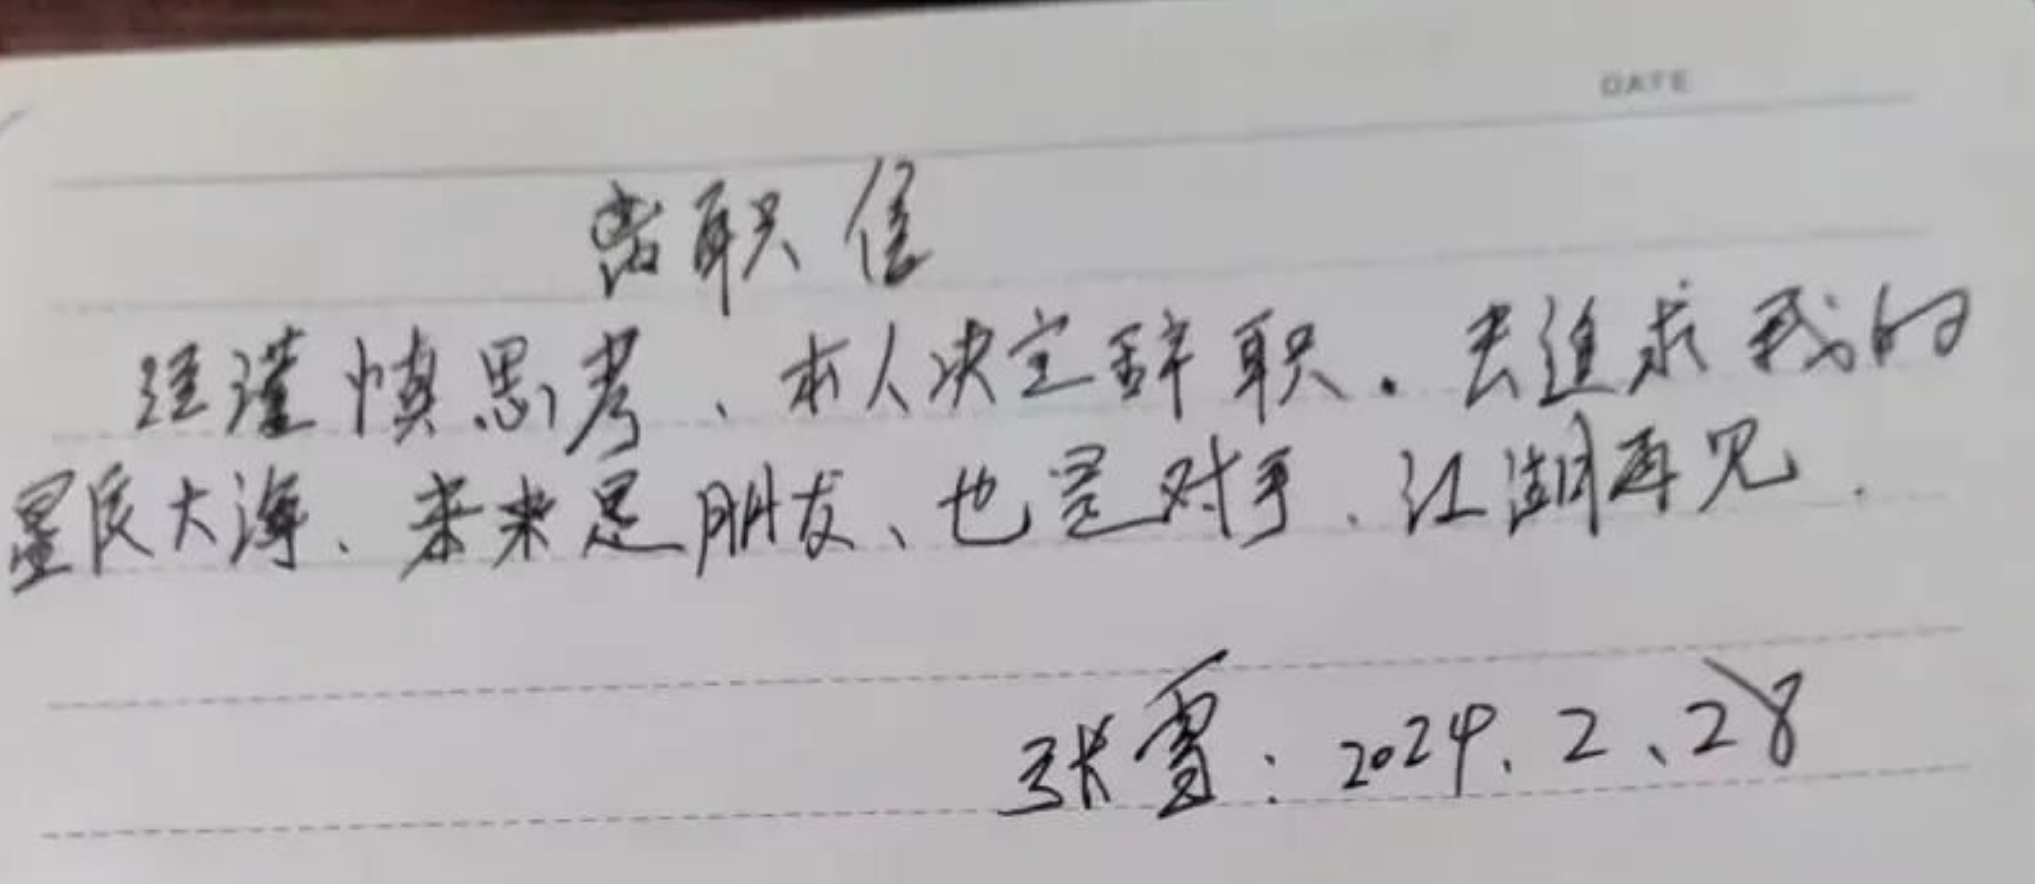 DATE
离职信
经谨慎思考、本人决定辞职.去追求我的
星辰大海、未来是朋友、也是对手.江湖再见.
张雪:2024.2、28